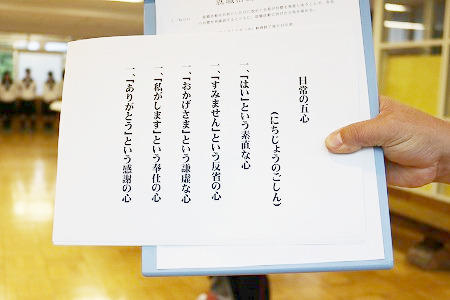 日常の五心
(にちじょうのごしん)
一、「はい」という素直な心
一、「すみません」という反省の心
一、「おかげさま」という謙虚な心
一、「私がします」という奉仕の心
一、「ありがとう」という感謝の心